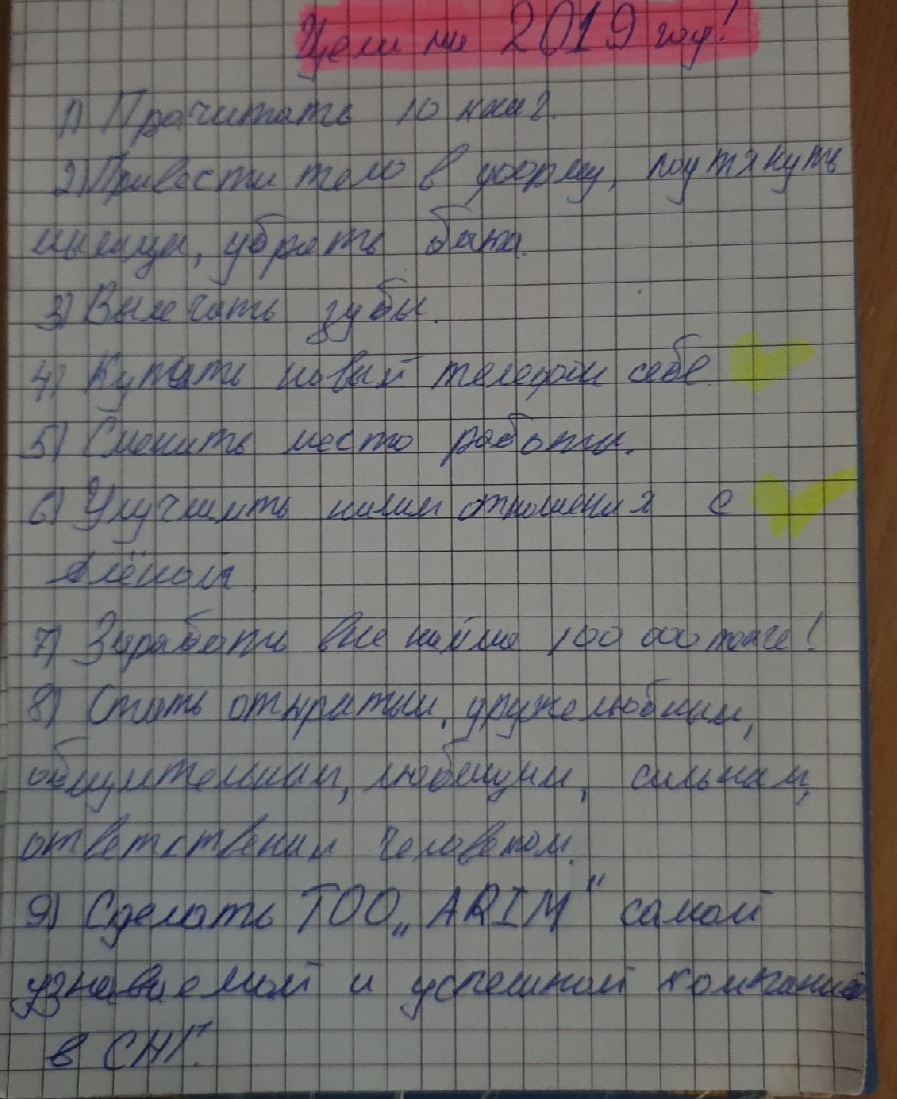 Цели на 2019 год!
1) Прочитать 10 книг.
2) Привести тело в форму, подтянуть
мышцы, убрать бока.
3) Вылечать зубы.
4) Купить новый телефон себе.
5) Сменить место работы.
6) Улучшить наши отношения с
Алёной.
7) Заработать 100 000 тенге!
8) Стать открытым, дружелюбным,
общительным, любящим, сильным,
ответственным человеком.
9) Сделать ТОО „ARIM" самой
узнаваемой и успешной компанией
в СНГ.